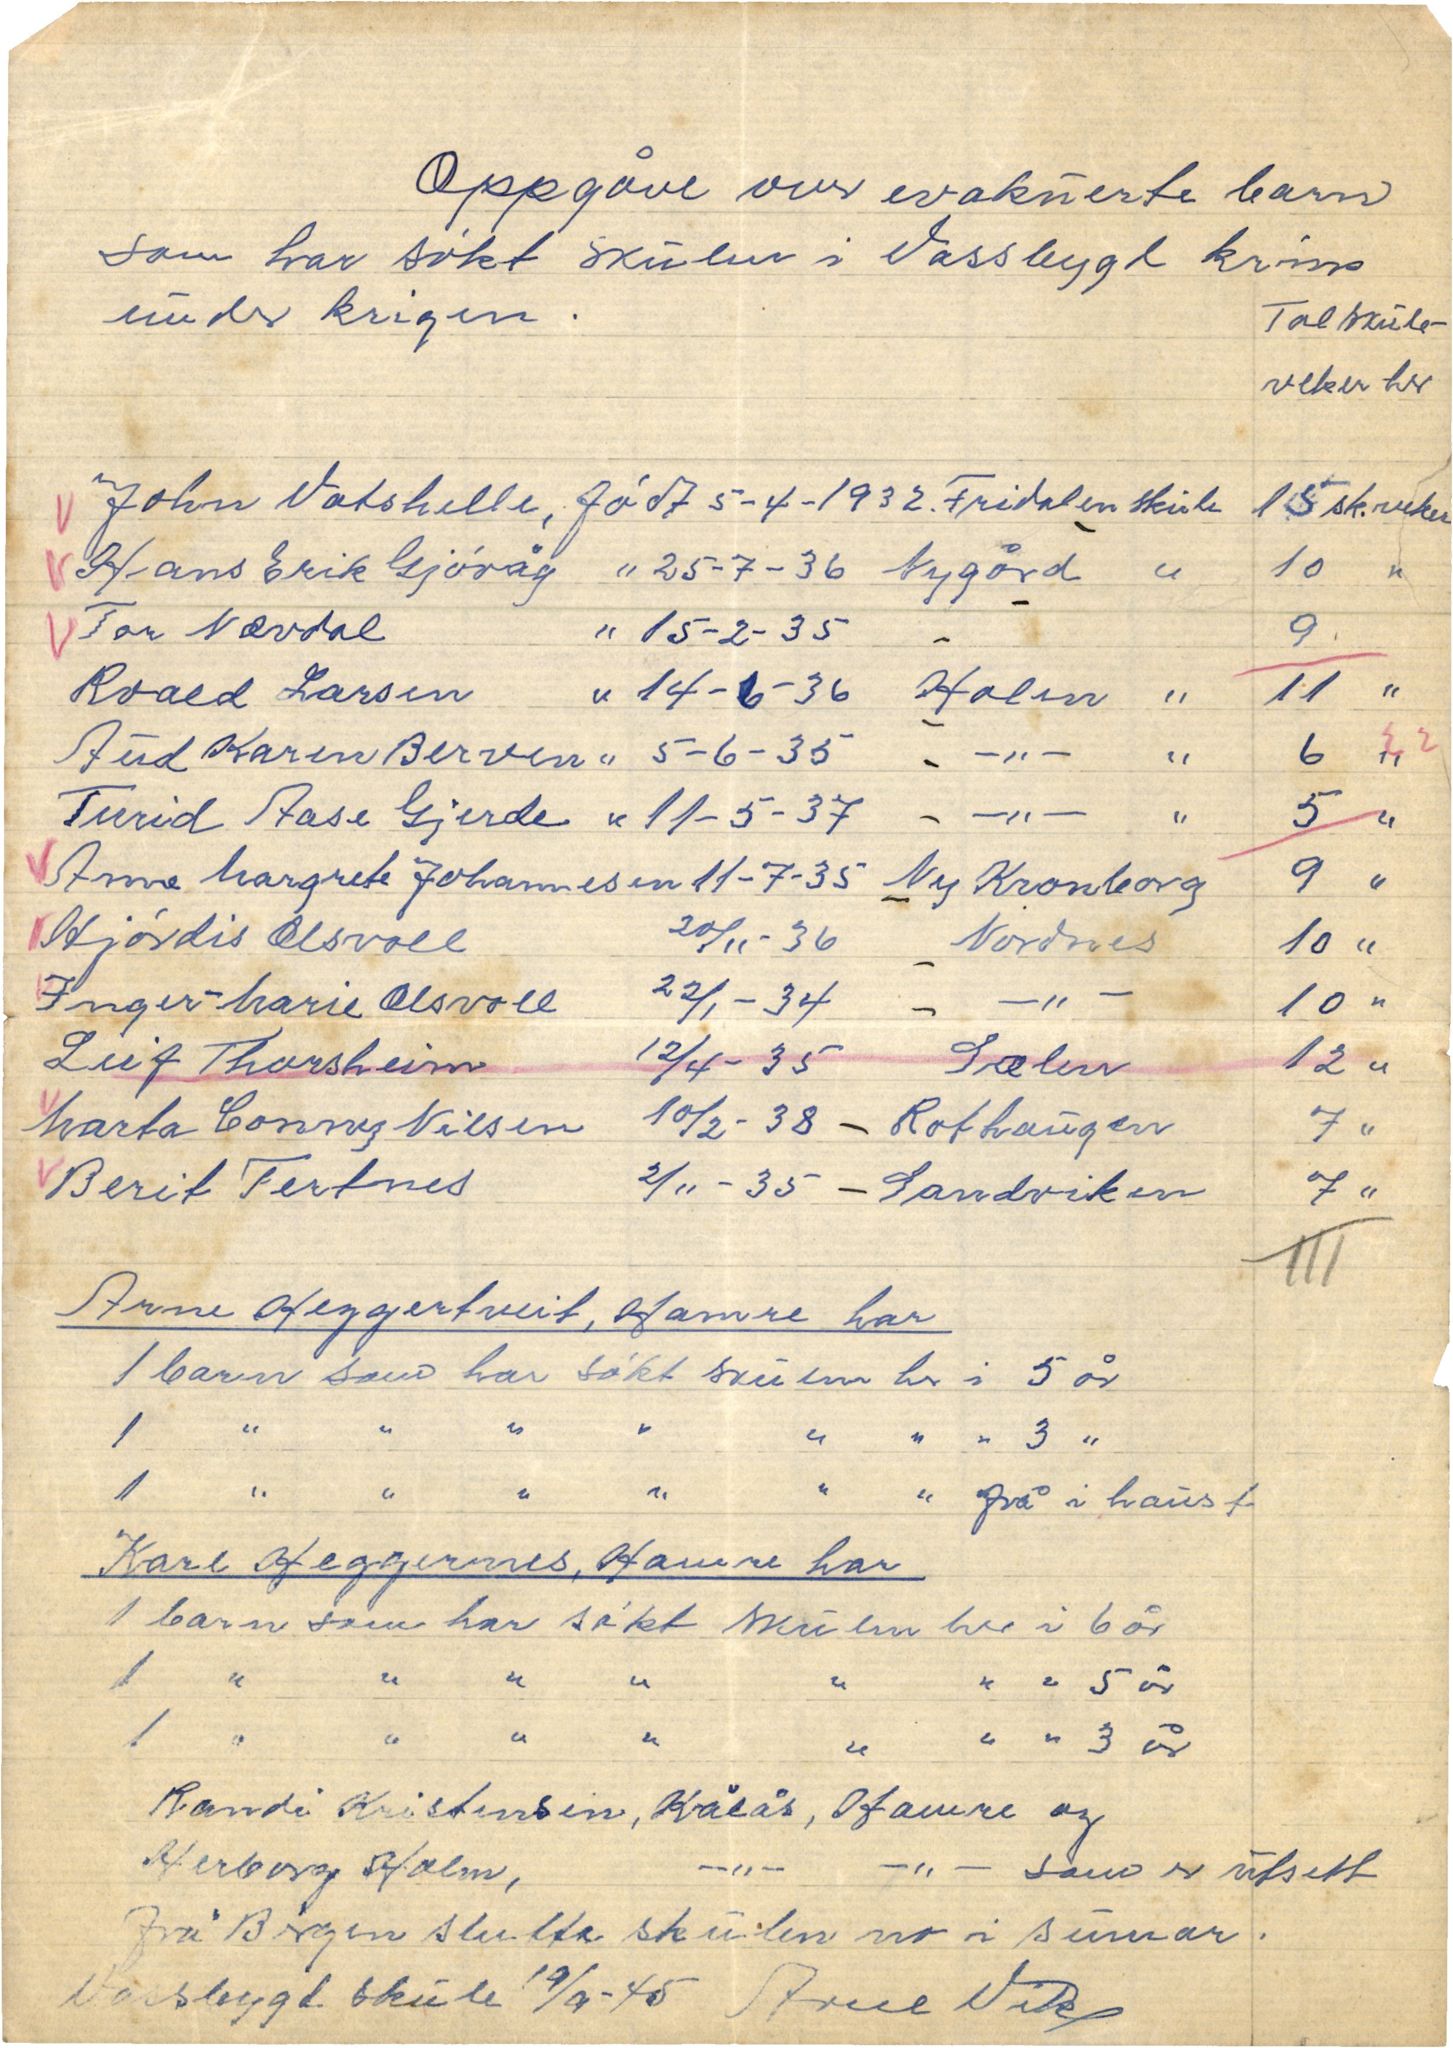 Oppgåve over evakuerte barn
som har søkt skulen i Vassbygd krins
under krigen.
Tal skule-
veker her
John Vatshelle, født 5-4-1932. Fridalen skule 15 sk.veker
Hans Erik Gjøvåg " 25-7-36 Nygård " 10 "
Tor Nævdal " 15-2-35 - 9.
Roald Larsen " 14-6-36 Holen " 11 "
Aud Karen Berven " 5-6-35 - -"- " 6 "
Turid Aase Gjerde " 11-5-37 - -"- " 5 "
Anne Margrete Johannesen 11-7-35 Ny Kronborg 9 "
Hjørdis Olsvoll 20/11-36 - Nordnes 10 "
Inger-Marie Olsvoll 22/1-34 - -"- 10 "
Leif Thorsheim 12/4-35 Sælen 12 "
Marta Conny Nilsen 10/2-38 - Rothaugen 7 "
Berit Tertnes 2/11-35 - Sandviken 7 "
111
Arne Heggertveit, Hamre har
1 barn som har søkt skulen her i 5 år
1 " " " " " " " 3 "
1 " " " " " " frå i haust
Karl Heggernes, Hamre har
1 barn som har søkt skulen her i 6 år
1 " " " " " " " 5 år
1 " " " " " " " 3 år
Randi Kristensen, Kålås, Hamre og
Herborg Holm, -"- -"- som er utsett
frå Bergen slutta skulen no i sumar.
Vassbygd skule 19/9-45 Arne Vik